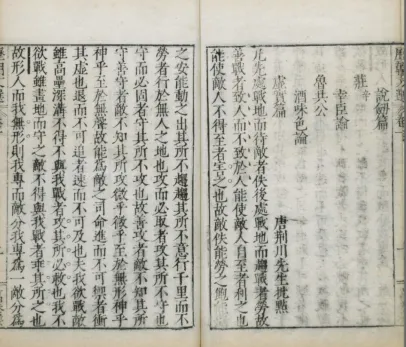 說姻篇
莊辛
幸臣論
魯共公
酒味色論
虛實篇
唐荊川先生批點
凡先處戰地而待敵者佚後處戰地而趨戰者勞故
善戰者致人而不致於人能使敵人自至者利之也
能使敵人不得至者害之也故敵佚能勞之飽能
之安能動之出其所不趨趨其所不意行千里而不
勞者行於無人之地也攻而必取者攻其所不守也
守而必固者守其所不攻也故善攻者敵不知其所
守善守者敵不知其所攻微乎微乎至於無形神乎
神乎至於無聲故能為敵之司命進而不可禦者衝
其虛也退而不可追者速而不可及也夫我欲戰敵
雖高壘深溝不得不與我戰者攻其所必救也我不
欲戰雖畫地而守之敵不得與我戰者乖其所之也
故形人而我無形則我專而敵分我專為一敵分為